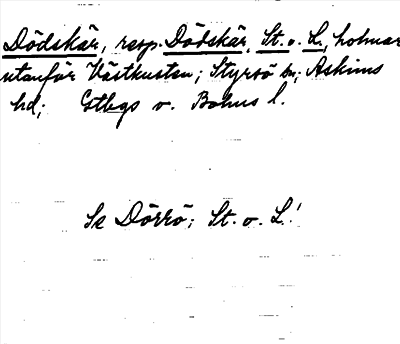 Dödskär, resp. Dödskär, St. o. L., holmar
utanför Västkusten; Styrsö sn; Askims
hd; Gtbgs o. Bohus l.
Se Dörrö; St. o. L!